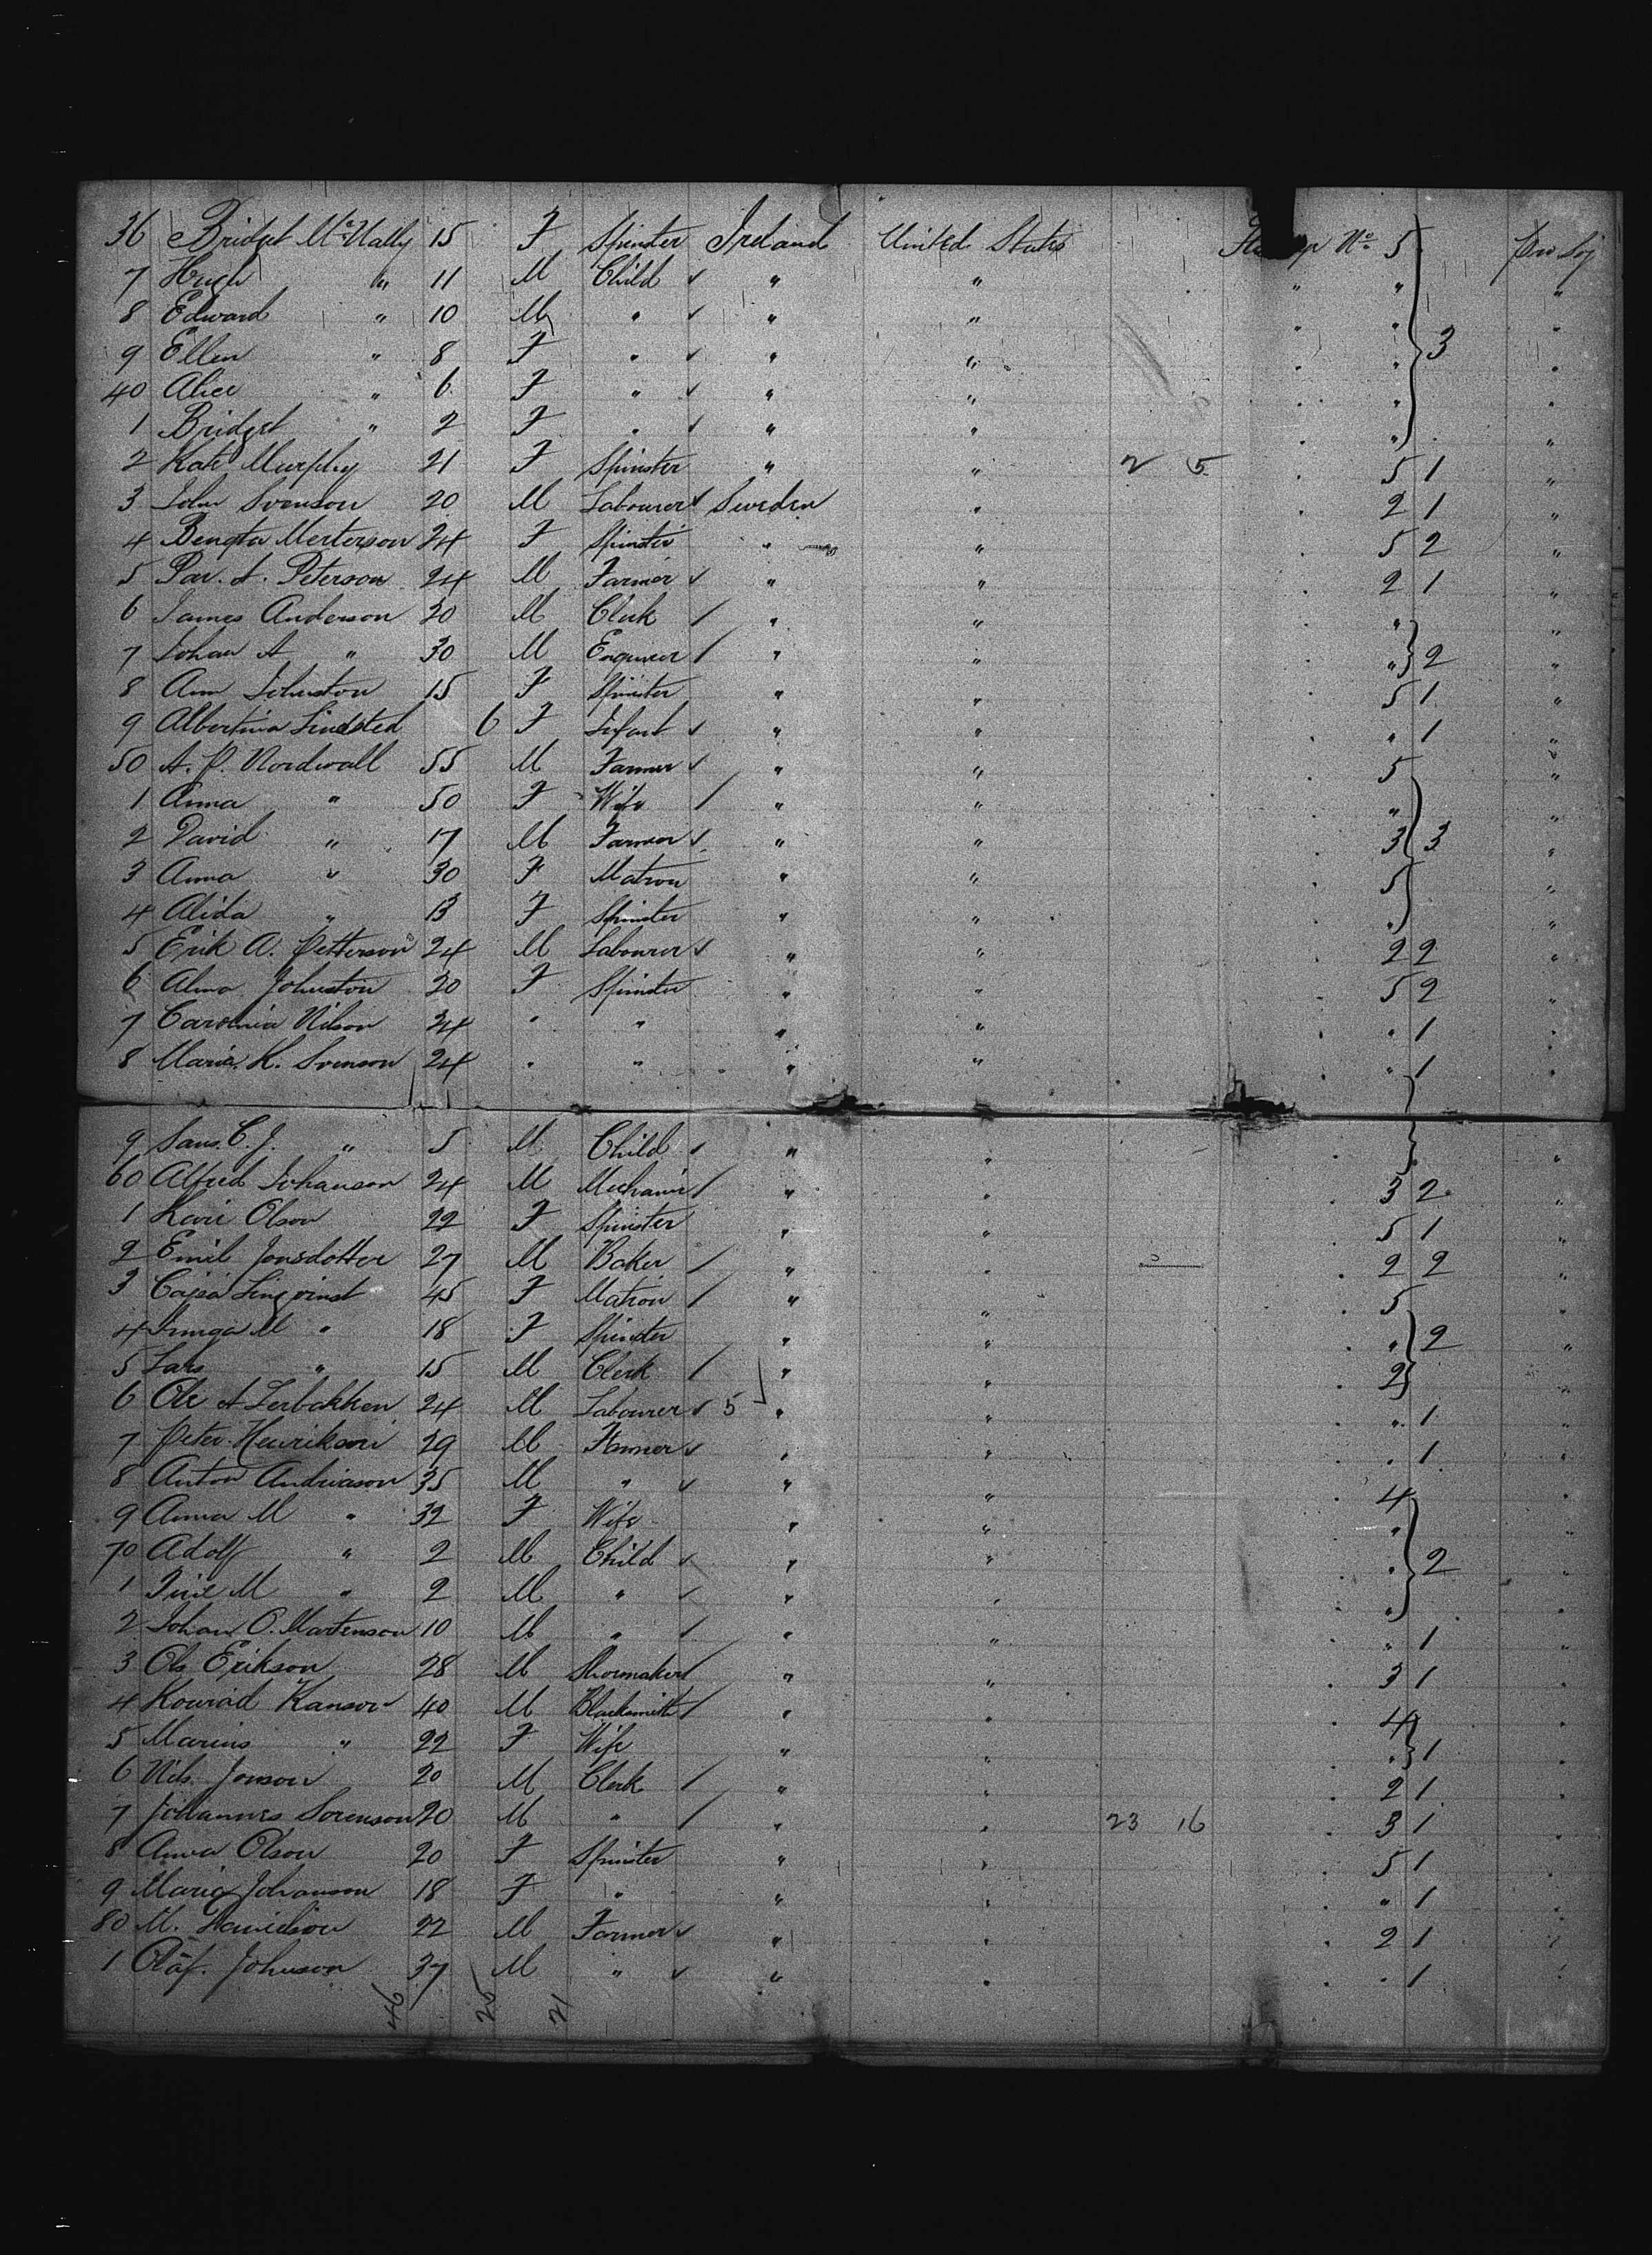 36 Bridget McNally 15 F Spinster Ireland United States No 5 Pro Soj
7 Hugh " 11 M Child " " " " "
8 Edward " 10 M " " " " " "
9 Ellen " 8 F " " " " " 3 "
40 Alice " 6 F " " " " " "
1 Bridget " 2 F " " " " " "
2 Kate Murphy 21 F Spinster " " 2 5 " 5 1 "
3 John Svenson 20 M Labourer Sweden " " 2 1 "
4 Bengta Merterson 24 F Spinster " " " 5 2 "
5 Par. A. Peterson 24 M Farmer " " " 2 1 "
6 James Anderson 20 M Clerk " " " "
7 Johan A " 30 M Engineer " " " 2 "
8 Ann Johnston 15 F Spinster " " 5 1 "
9 Albertina Lindsted 6 F Infant " " " 1 "
50 A. P. Nordwall 55 M Farmer " " 5 "
1 Anna " 50 F Wife " " " "
2 David " 17 M Farmer " " " 3 3 "
3 Anna " 30 F Matron " " " 5 "
4 Alida " 13 F Spinster " " " "
5 Erik A. Petterson 24 M Labourer " " " 2 2 "
6 Alma Johnston 20 F Spinster " " " 5 2 "
7 Carolina Nilson 24 " " " " " " 1 "
8 Maria K. Svenson 24 " " " " " " 1 "
9 C. J. " 5 M Child " " "
60 Alfred Johanson 24 M Mechanic " " " 3 2 "
1 Kari Olson 22 F Spinster " " " 5 1 "
2 Emil Jonsdotter 27 M Baker " " " 2 2 "
3 Cajsa 45 F Matron " " " 5 "
4 M " 18 F Spinster " " " " 2 "
5 Lars " 15 M Clerk " " " 2 "
6 Ole A Lerbakken 24 M Labourer 5 " " " " 1 "
7 Peter Henrikson 29 M Farmer " " " " 1 "
8 Anton Andriason 35 M " " " " 4 "
9 Anna M " 32 F Wife " " " "
70 Adolf " 2 M Child " " " 2 "
1 M " 2 M " " " " "
2 Johan O. Martenson 10 M " " " " 1 "
3 Ols Erikson 28 M Shoemaker " " " 3 1 "
4 Konrad Hanson 40 M Blacksmith " " " 4 "
5 Marius " 22 F Wife " " " " 1 "
6 Nils Jonson 20 M Clerk " " " 2 1 "
7 Johannes Sorenson 20 M " " " 23 16 " 3 1 "
8 Anna Olson 20 F Spinster " " " 5 1 "
9 Maria Johanson 18 F " " " " " 1 "
80 M. 22 M Farmer " " " 2 1 "
1 Olaf. Johnson 37 M " " " " " 1 "
46 25 21